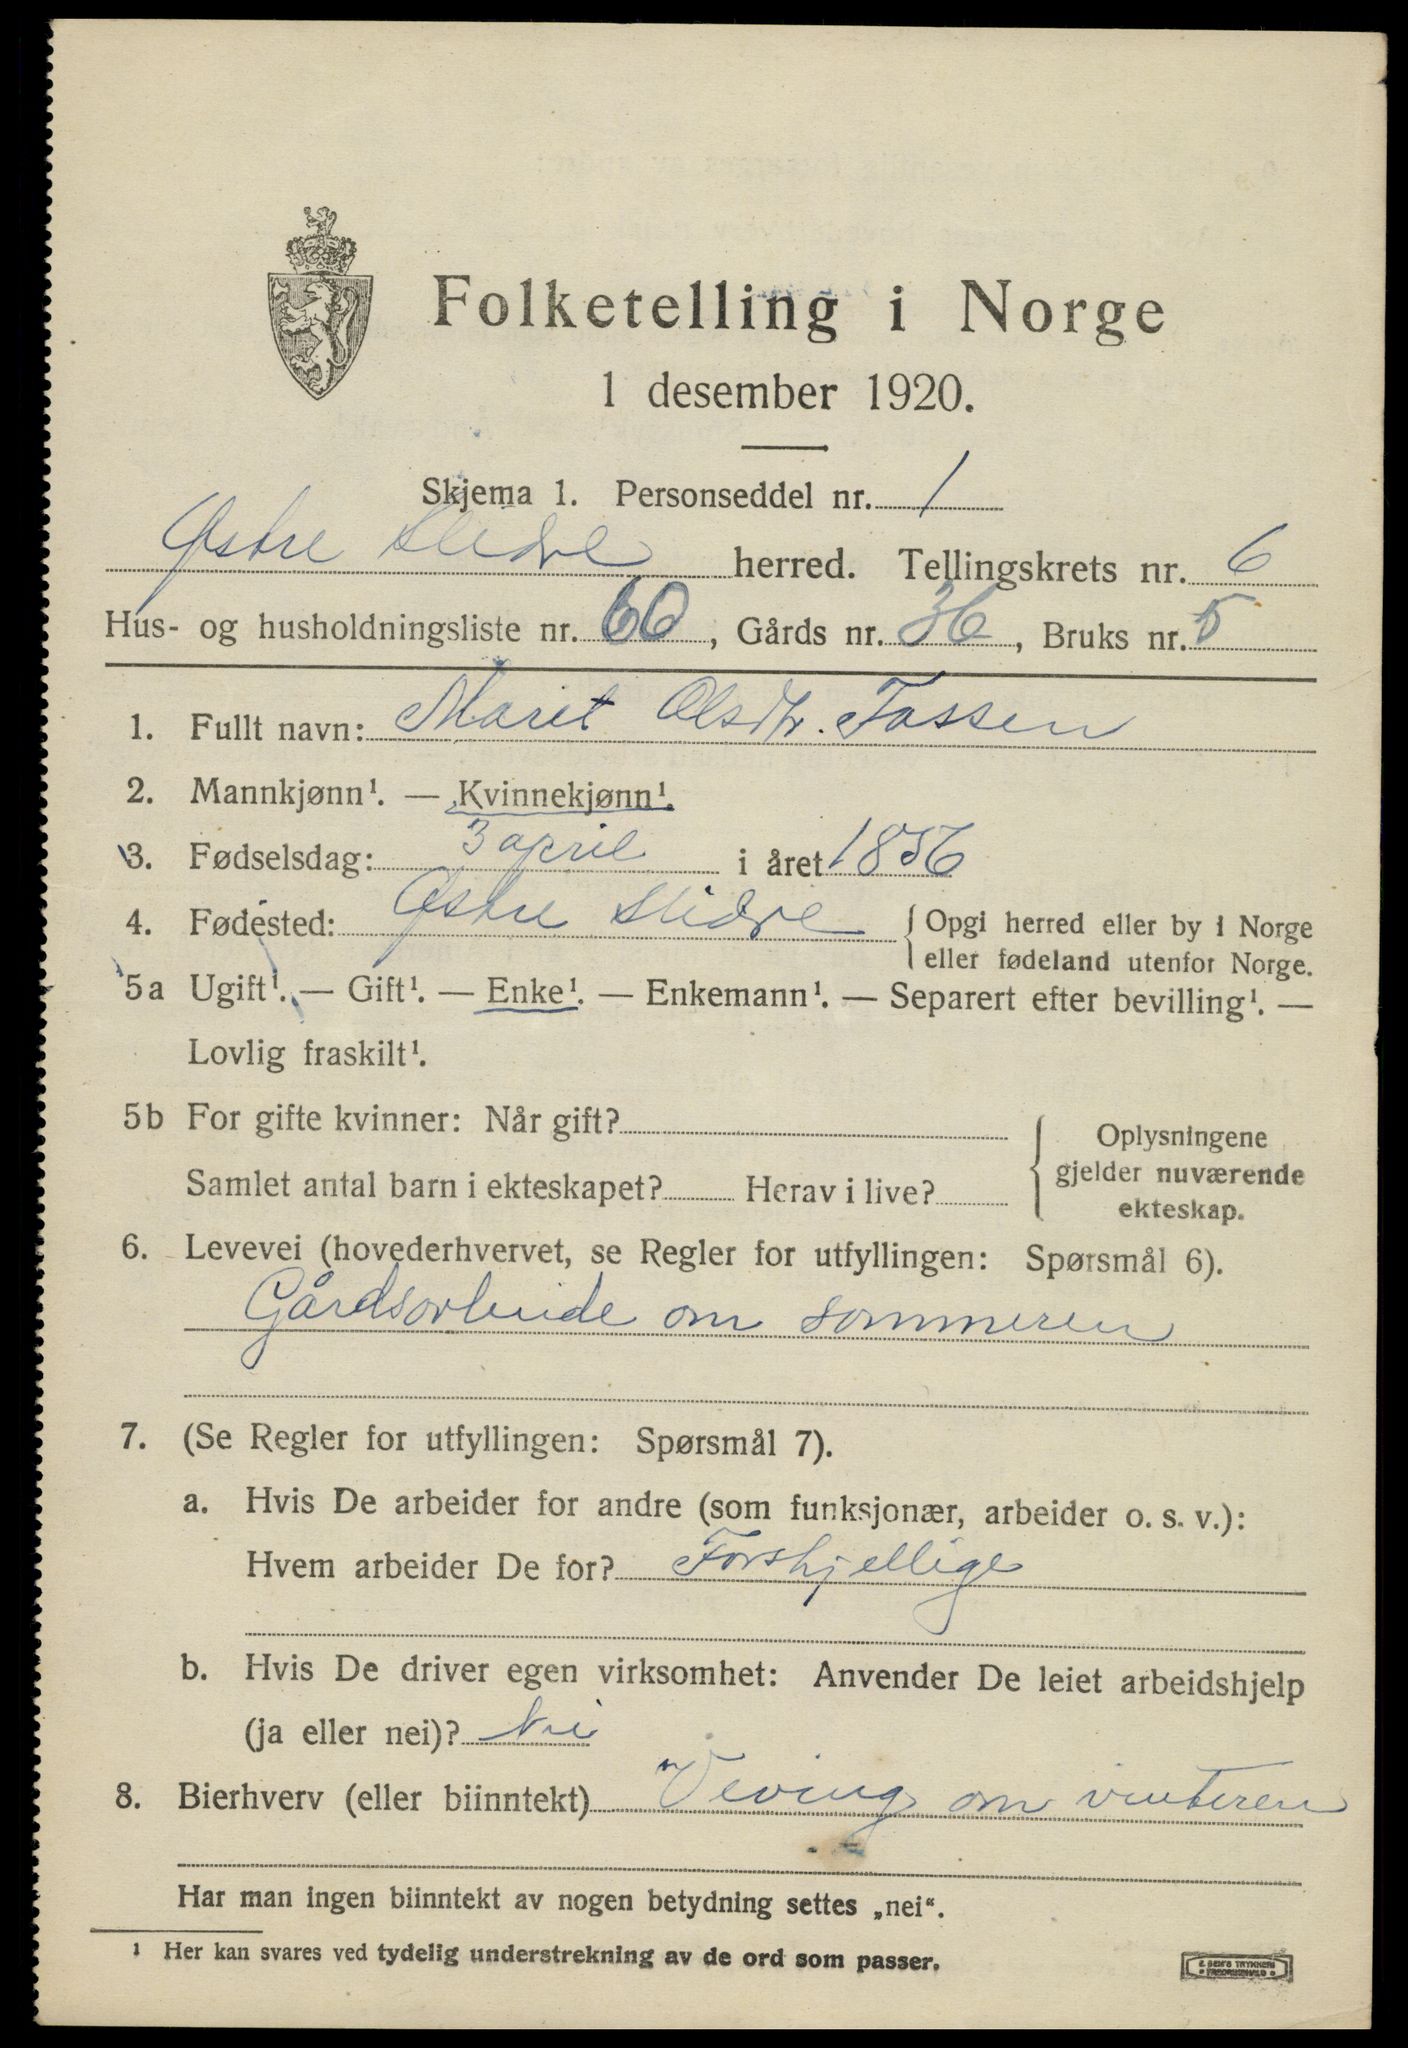 Folketelling i Norge
1 desember 1920.
Skjema 1. Personseddel nr. 1
Østre Slidre herred. Tellingskrets nr. 6
Hus- og husholdningsliste nr. 60, Gårds nr. 36, Bruks nr. 5
1. Fullt navn: Marit Olsdtr. Fossen
2. Mannkjønn¹. — Kvinnekjønn¹.
3. Fødselsdag: 3 april i året 1856
4. Fødested: Østre Slidre { Opgi herred eller by i Norge
eller fødeland utenfor Norge.
5a Ugift¹. — Gift¹. — Enke¹. — Enkemann¹. — Separert efter bevilling¹. —
Lovlig fraskilt¹.
5b For gifte kvinner: Når gift?
Samlet antal barn i ekteskapet? Herav i live?
{ Oplysningene
gjelder nuværende
ekteskap.
6. Levevei (hovederhvervet, se Regler for utfyllingen: Spørsmål 6).
Gårdsarbeide om sommeren
7. (Se Regler for utfyllingen: Spørsmål 7).
a. Hvis De arbeider for andre (som funksjonær, arbeider o. s. v.):
Hvem arbeider De for? Forskjellige
b. Hvis De driver egen virksomhet: Anvender De leiet arbeidshjelp
(ja eller nei)? Nei
8. Bierhverv (eller biinntekt) Veving om vinteren
Har man ingen biinntekt av nogen betydning settes „nei“.
¹ Her kan svares ved tydelig understrekning av de ord som passer.